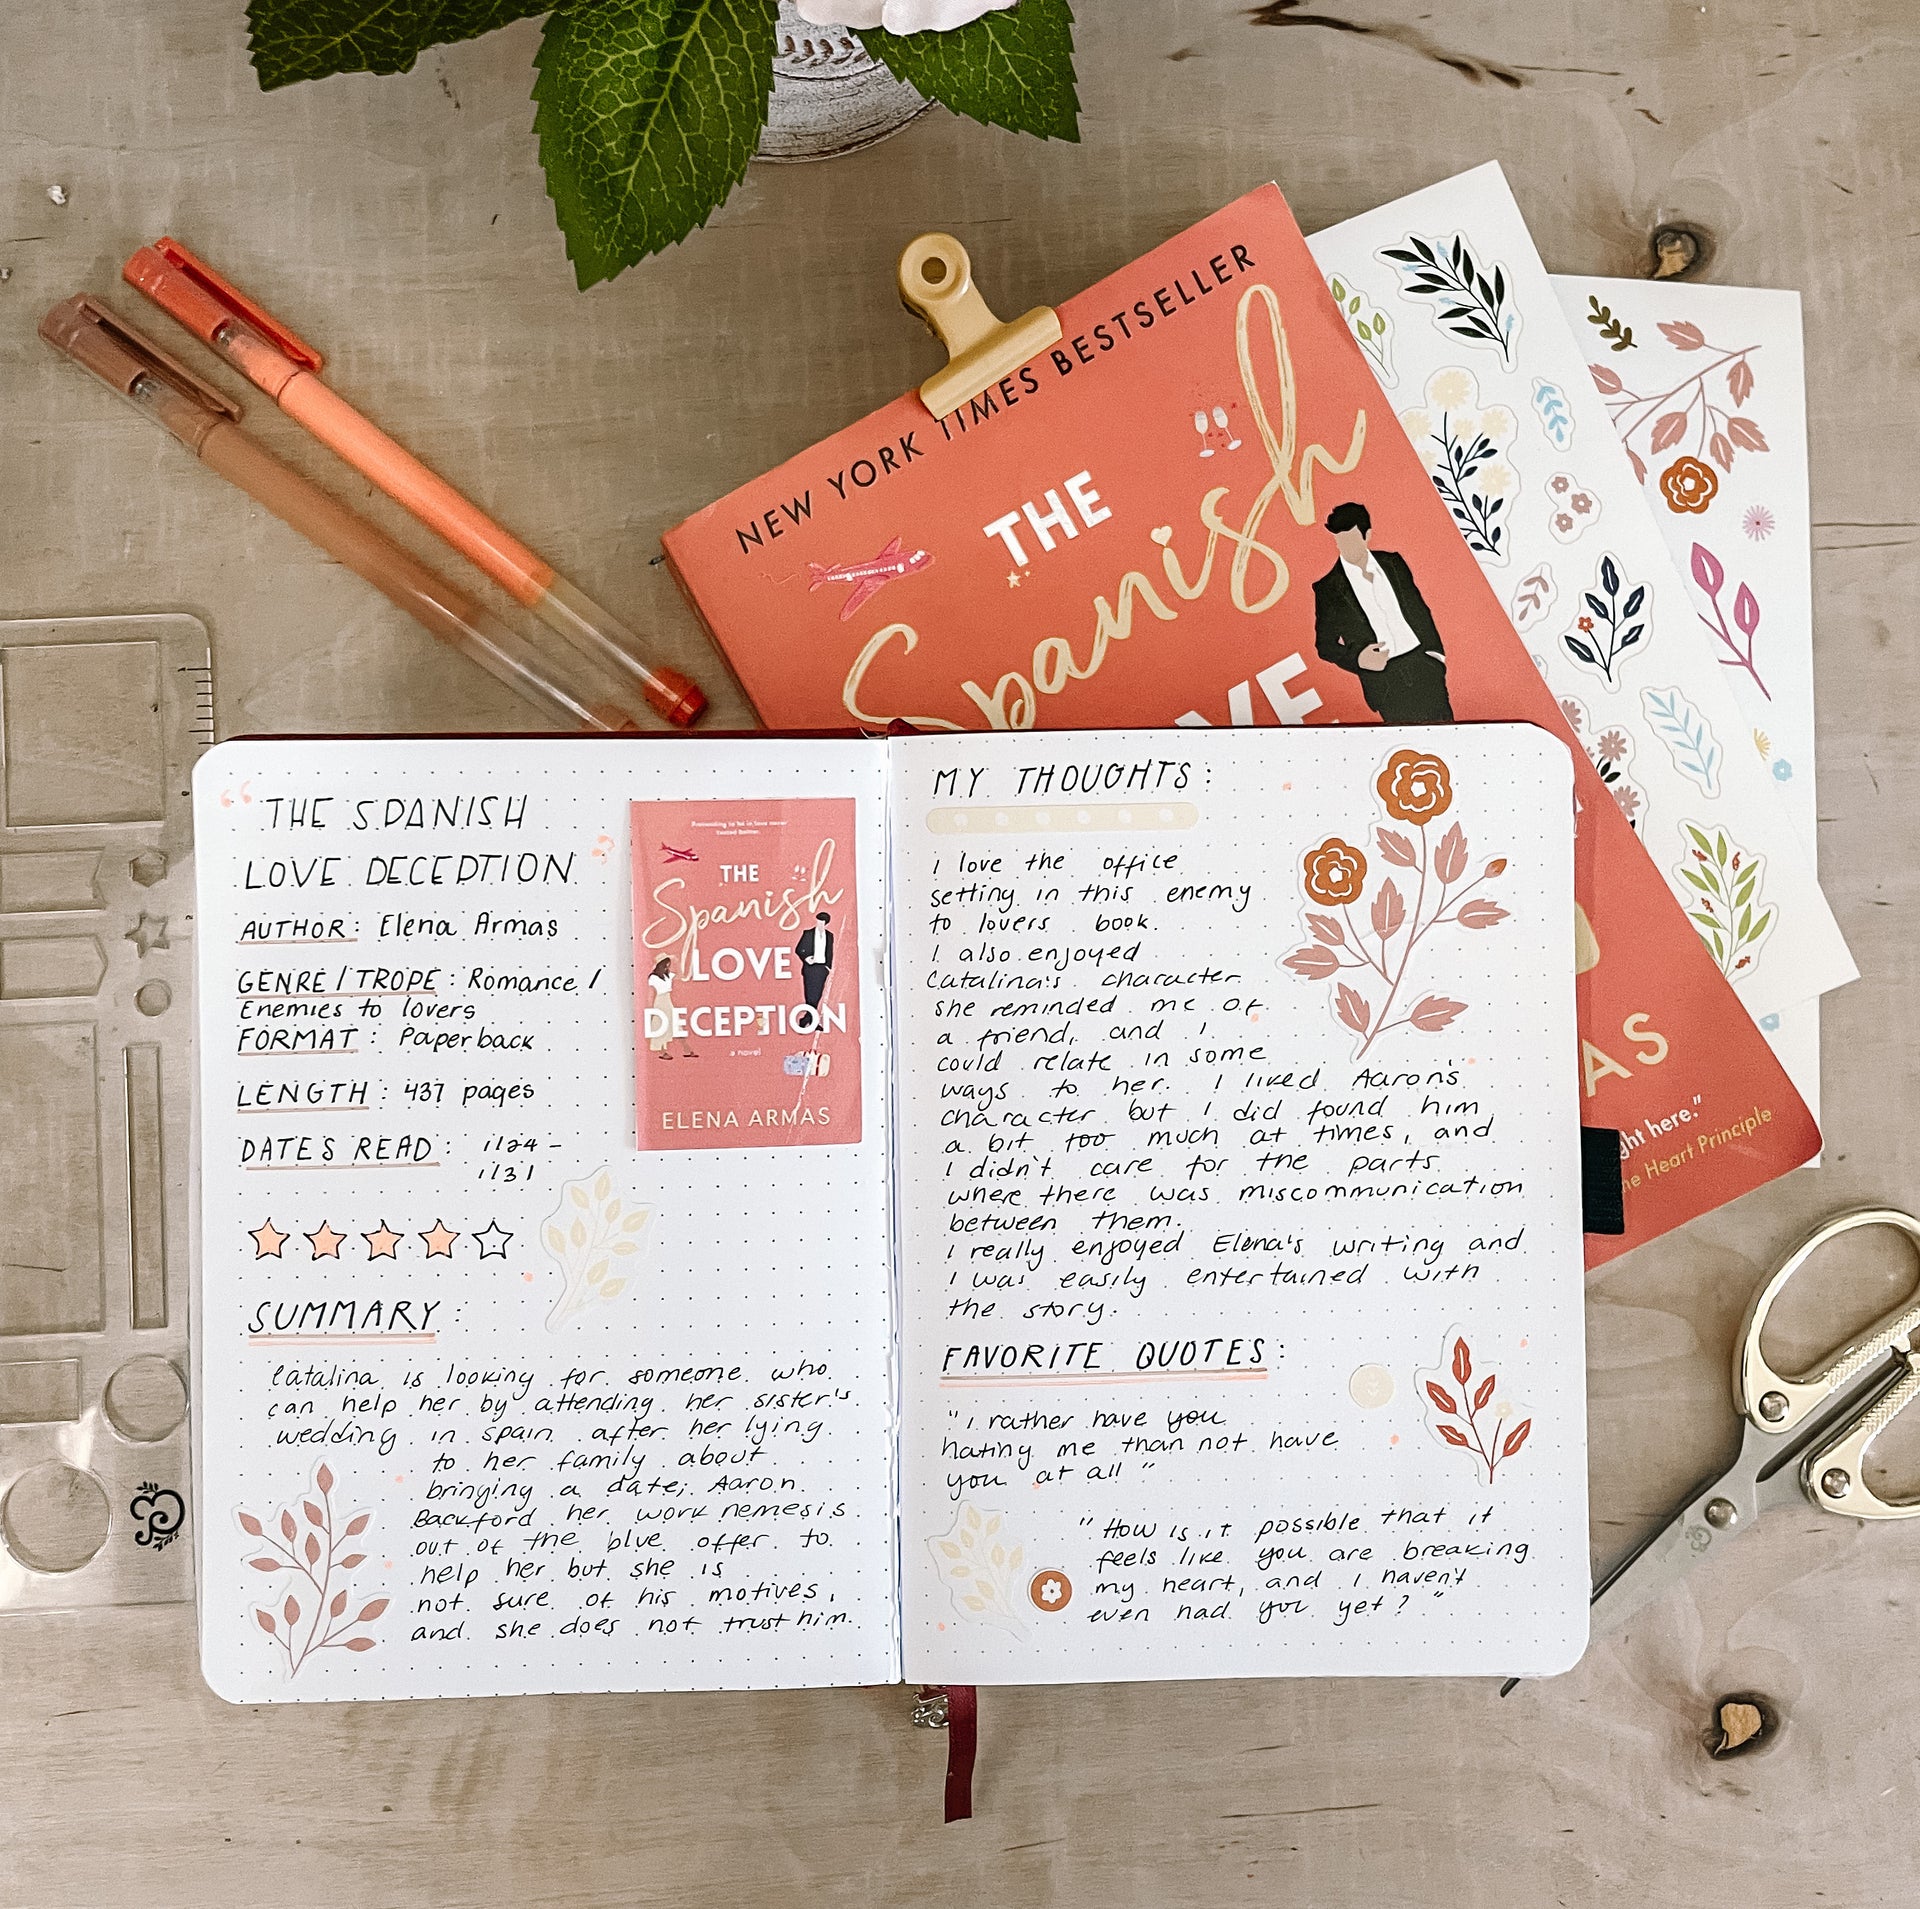 NEW YORK TIMES BESTSELLER
THE
Spanish
VE
AS
ght here."
he Heart Principle
THE SPANISH
LOVE DECEPTION
AUTHOR: Elena Armas
GENRE / TROPE: Romance /
Enemies to lovers
FORMAT: Paperback
LENGTH: 437 pages
DATES READ: 1/24 -
1/31
THE
Spanish
LOVE
DECEPTION
a novel
ELENA ARMAS
SUMMARY:
Catalina is looking for someone who
can help her by attending her sister's
wedding in spain after her lying
to her family about
bringing a date; Aaron
Backford her work nemesis
out of the blue offer to
help her but she is
not sure of his motives,
and she does not trust him.
MY THOUGHTS:
I love the office
setting in this enemy
to lovers book.
I also enjoyed
Catalina's character
she reminded me of
a friend, and I
could relate in some
ways to her. I liked Aaron's
character but I did found him
a bit too much at times, and
I didn't care for the parts
where there was miscommunication
between them.
I really enjoyed Elena's writing and
I was easily entertained with
the story.
FAVORITE QUOTES:
"I rather have you
hating me than not have
you at all"
"How is it possible that it
feels like you are breaking
my heart, and I haven't
even had you yet?"